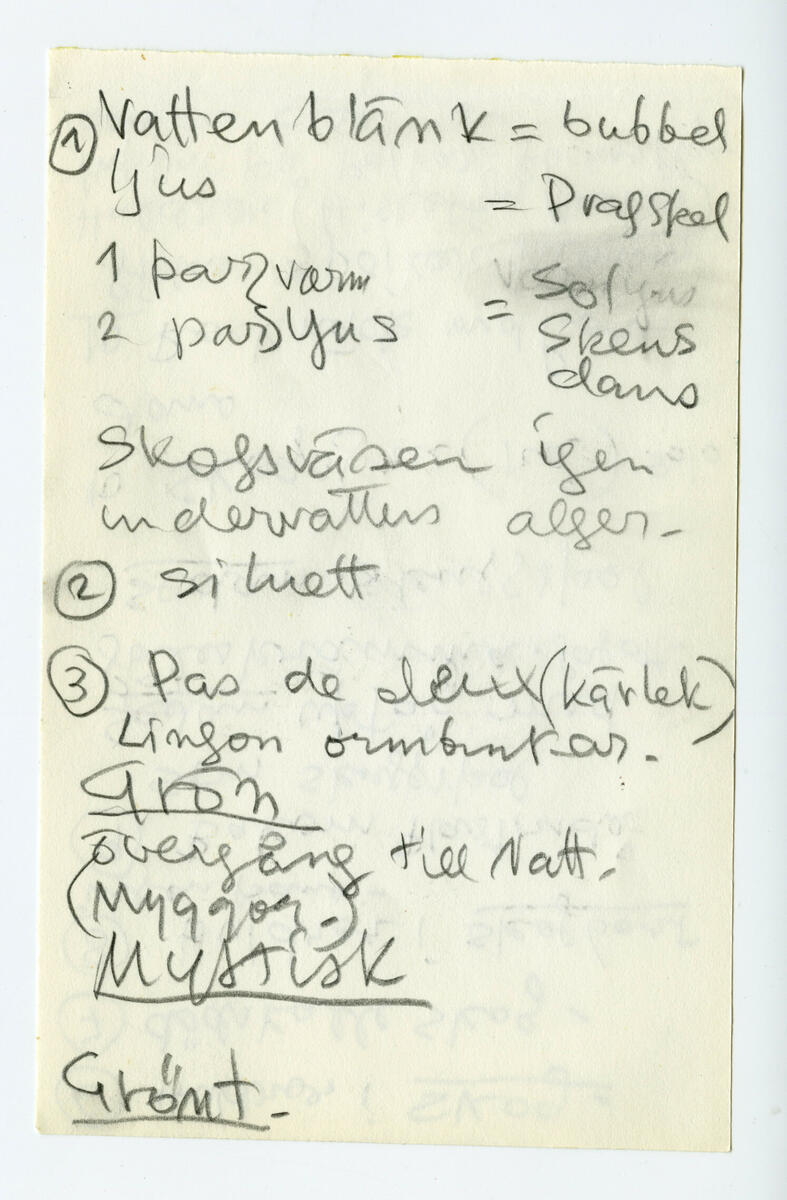 ① Vattenblänk = bubbel
ljus = Pragskal
1 par varm = Solljus
2 par ljus Skens
dans
Skogsväsen igen
undervattens alger-
② siluett
③ Pas de deux (kärlek)
Lingon ormbunkar.
Grön
övergång till Natt.
(Myggor.)
Mystisk
Grönt.